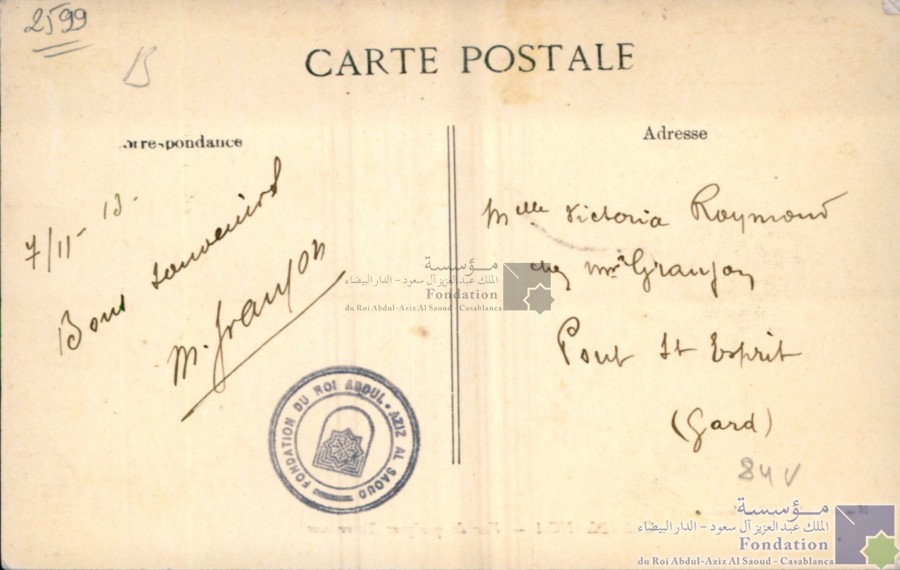 2599
B
CARTE POSTALE
orrespondance
Adresse
7/11-13.
Bons souvenirs
M. Granjon
Melle Victoria Raymond
chez Mr Granjon
Pont St Esprit
(Gard)
84 V
FONDATION DU ROI ABDUL-AZIZ AL SAOUD
مؤسسة
الملك عبد العزيز آل سعود - الدار البيضاء
Fondation
du Roi Abdul-Aziz Al Saoud - Casablanca
مؤسسة
الملك عبد العزيز آل سعود - الدار البيضاء
Fondation
du Roi Abdul-Aziz Al Saoud - Casablanca